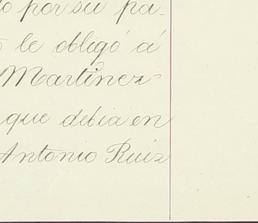 o por su pa-
le obligó á
Martinez
que debia en
Antonio Ruiz